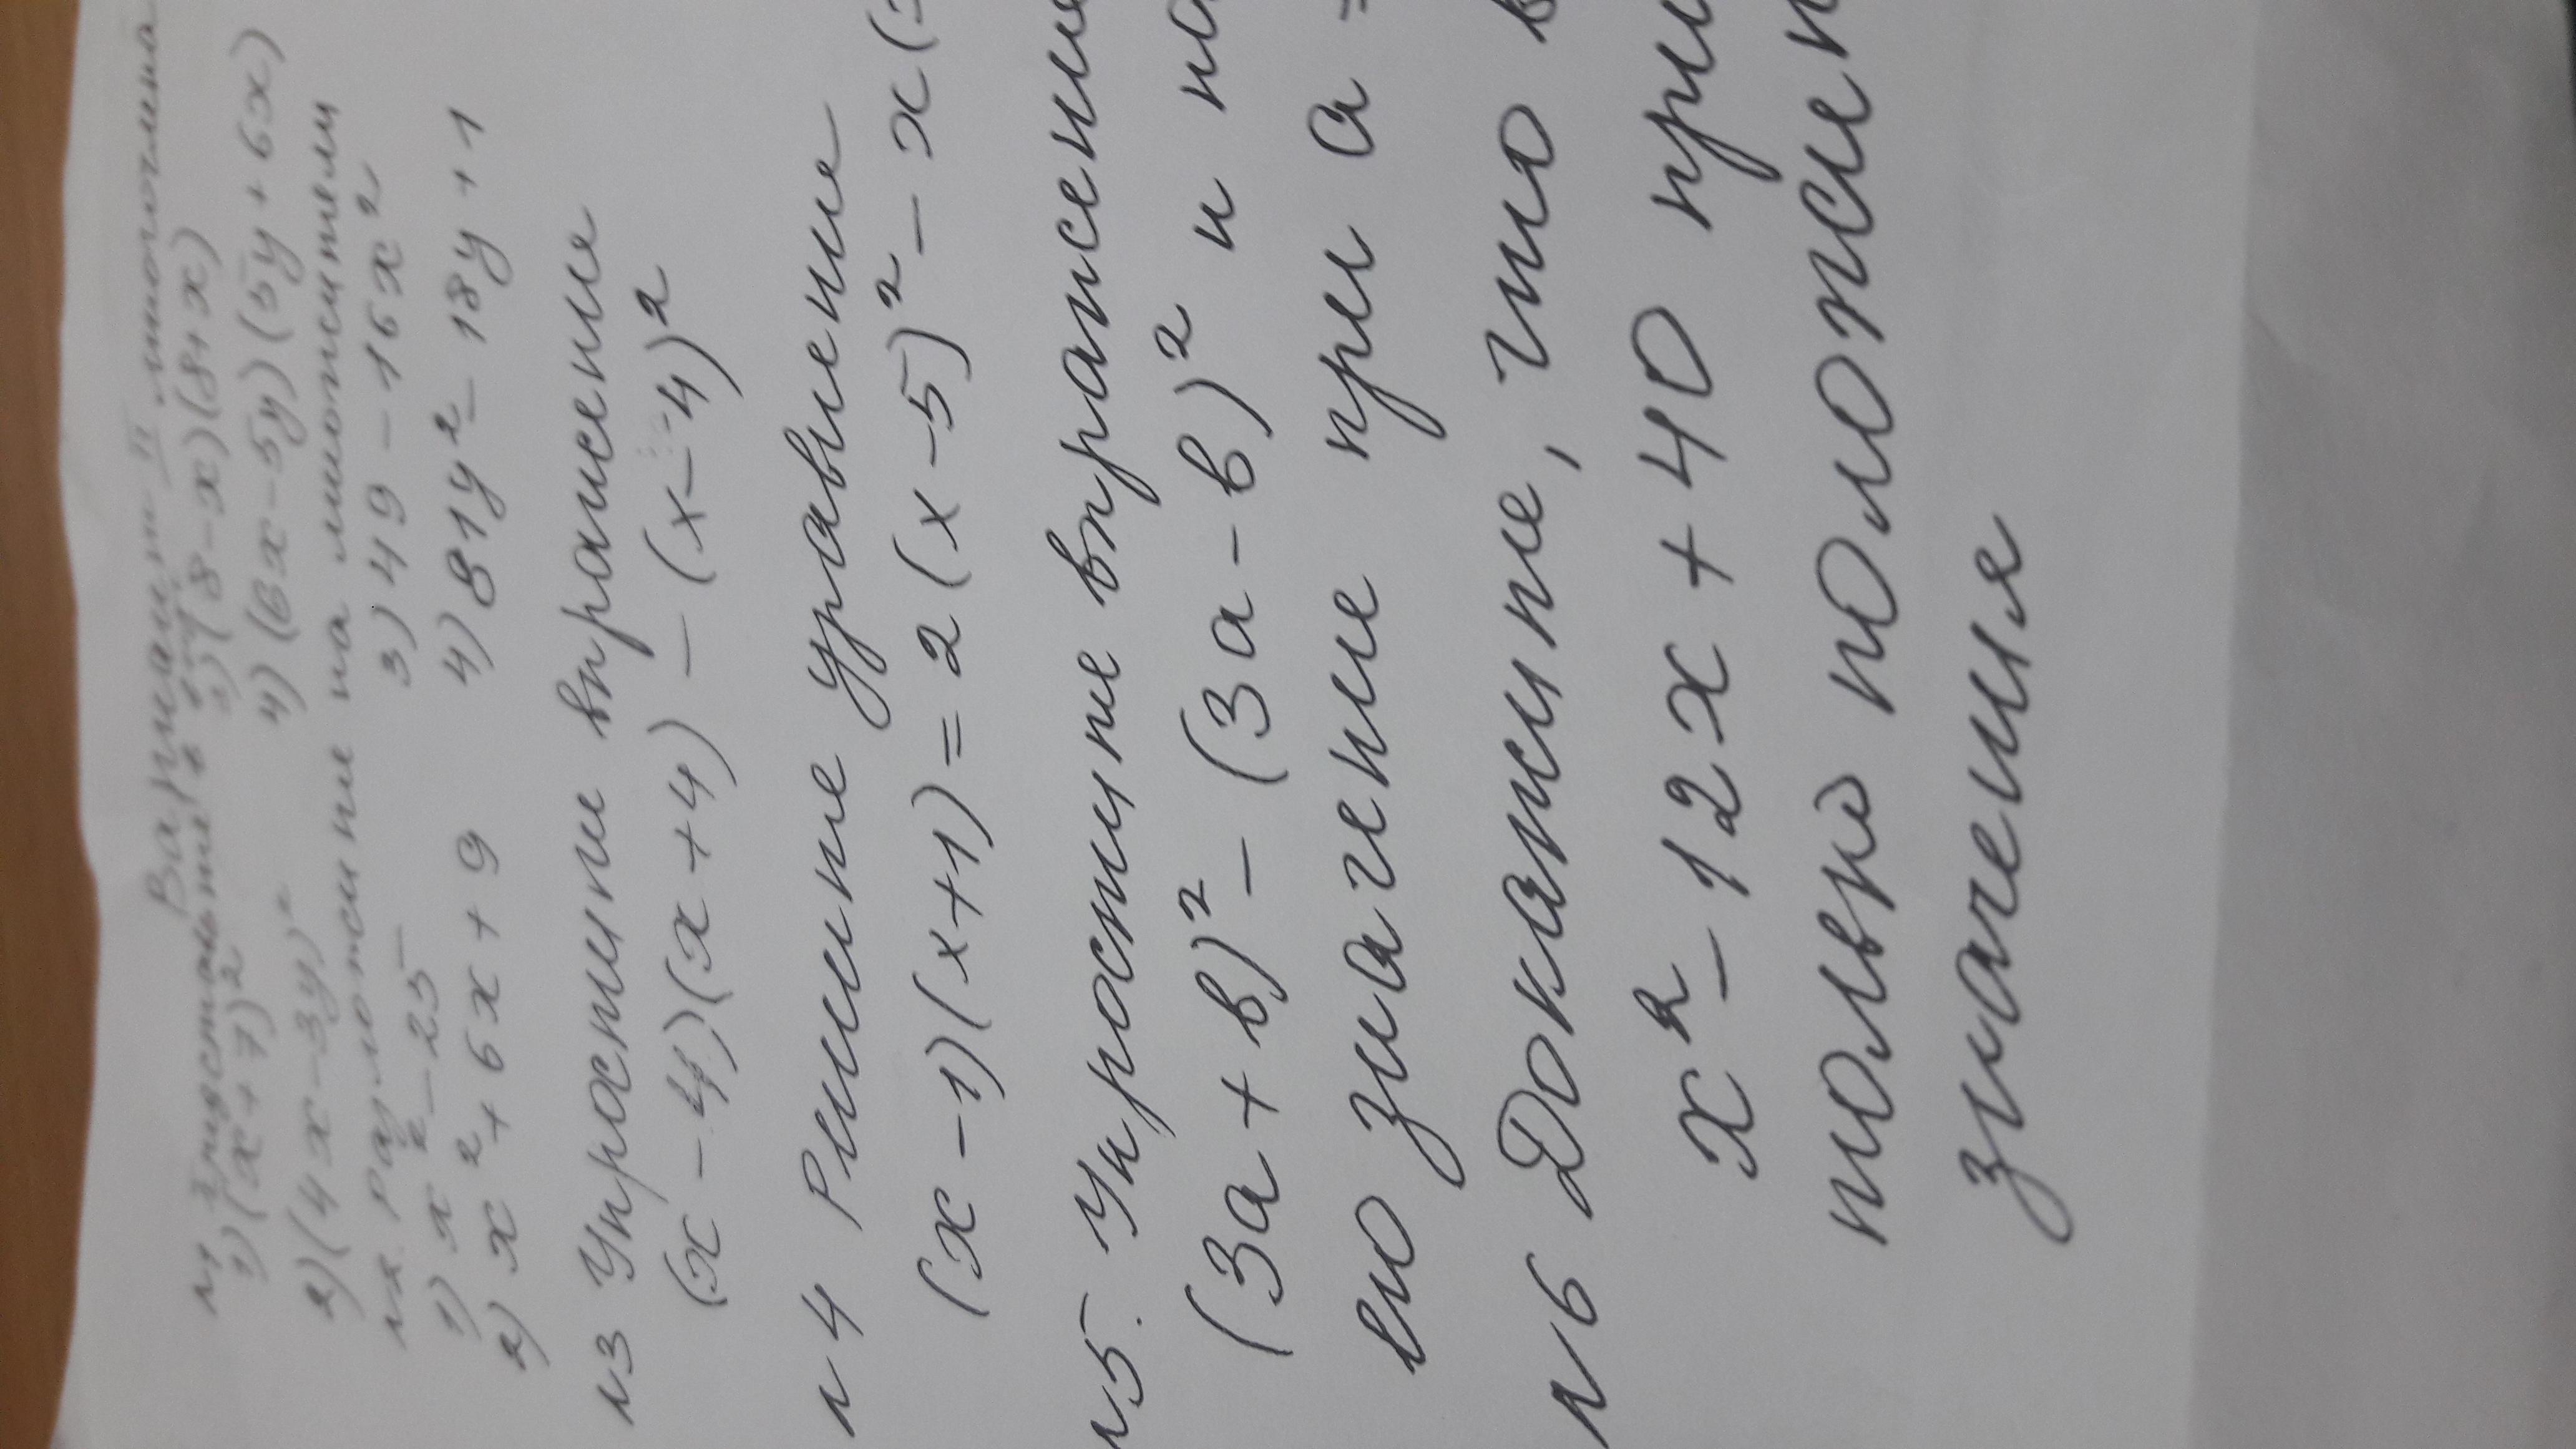 Вариант II
№1 Представьте в виде многочлена
1) (x+7)² 3) (8-x)(8+x)
2) (4x-3y)² 4) (6x-5y)(5y+6x)
№2. Разложите на множители
1) x²-25 3) 49-16x²
2) x²+6x+9 4) 81y²-18y+1
№3 Упростите выражение
(x-4)(x+4)-(x-4)²
№4 Решите уравнение
(x-1)(x+1)=2(x-5)²-x(
№5. Упростите выражени
(3a+в)²-(3a-в)² и на
его значение при a =
№6 Докажите, что в
x²-12x+40 при
только положит
значения